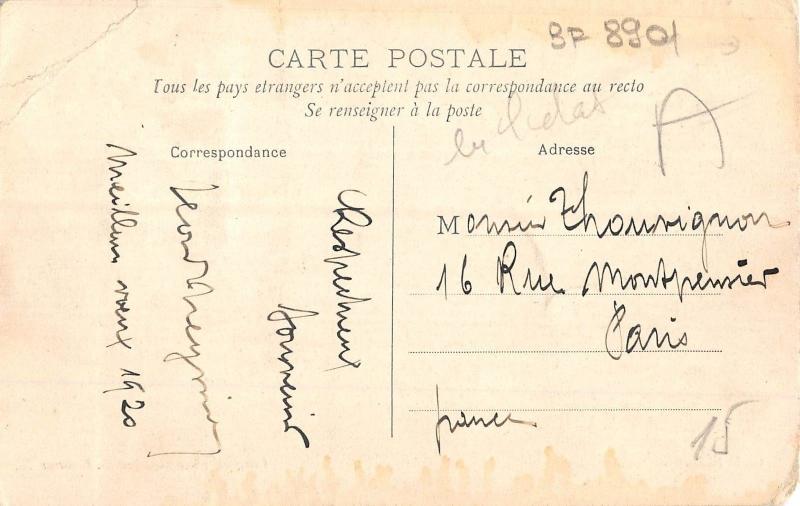 BF 8901
CARTE POSTALE
Tous les pays etrangers n'acceptent pas la correspondance au recto
Se renseigner à la poste
A
Correspondance
Respectueux
souvenir
Meilleurs vœux 1920
Adresse
Monsieur Thouvignon
16 Rue Montpensier
Paris
france
15